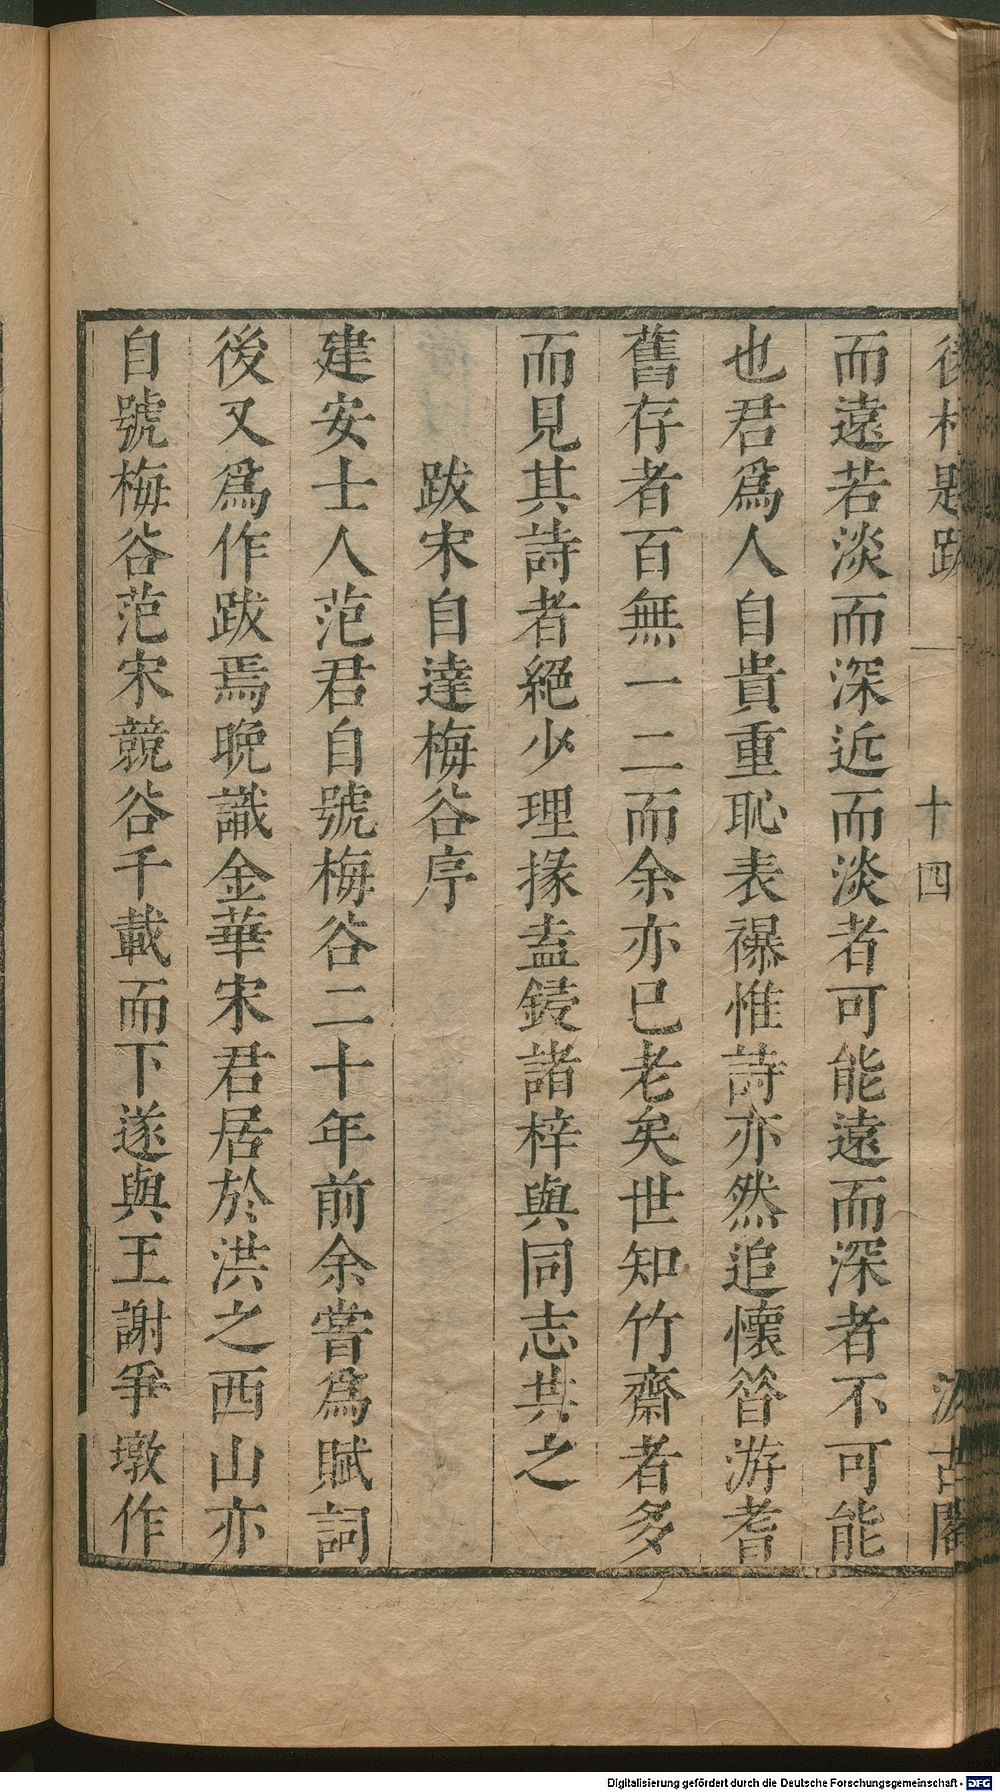 後村題跋 一 十四 汲古閣
而遠若淡而深近而淡者可能遠而深者不可能
也君爲人自貴重恥表襮惟詩亦然追懷昝游耆
舊存者百無一二而余亦已老矣世知竹齋者多
而見其詩者絕少理掾盍鋟諸梓與同志共之
跋宋自達梅谷序
建安士人范君自號梅谷二十年前余嘗爲賦詞
後又爲作跋焉晚識金華宋君居於洪之西山亦
自號梅谷范宋競谷千載而下遂與王謝爭墩作
Digitalisierung gefördert durch die Deutsche Forschungsgemeinschaft - DFG